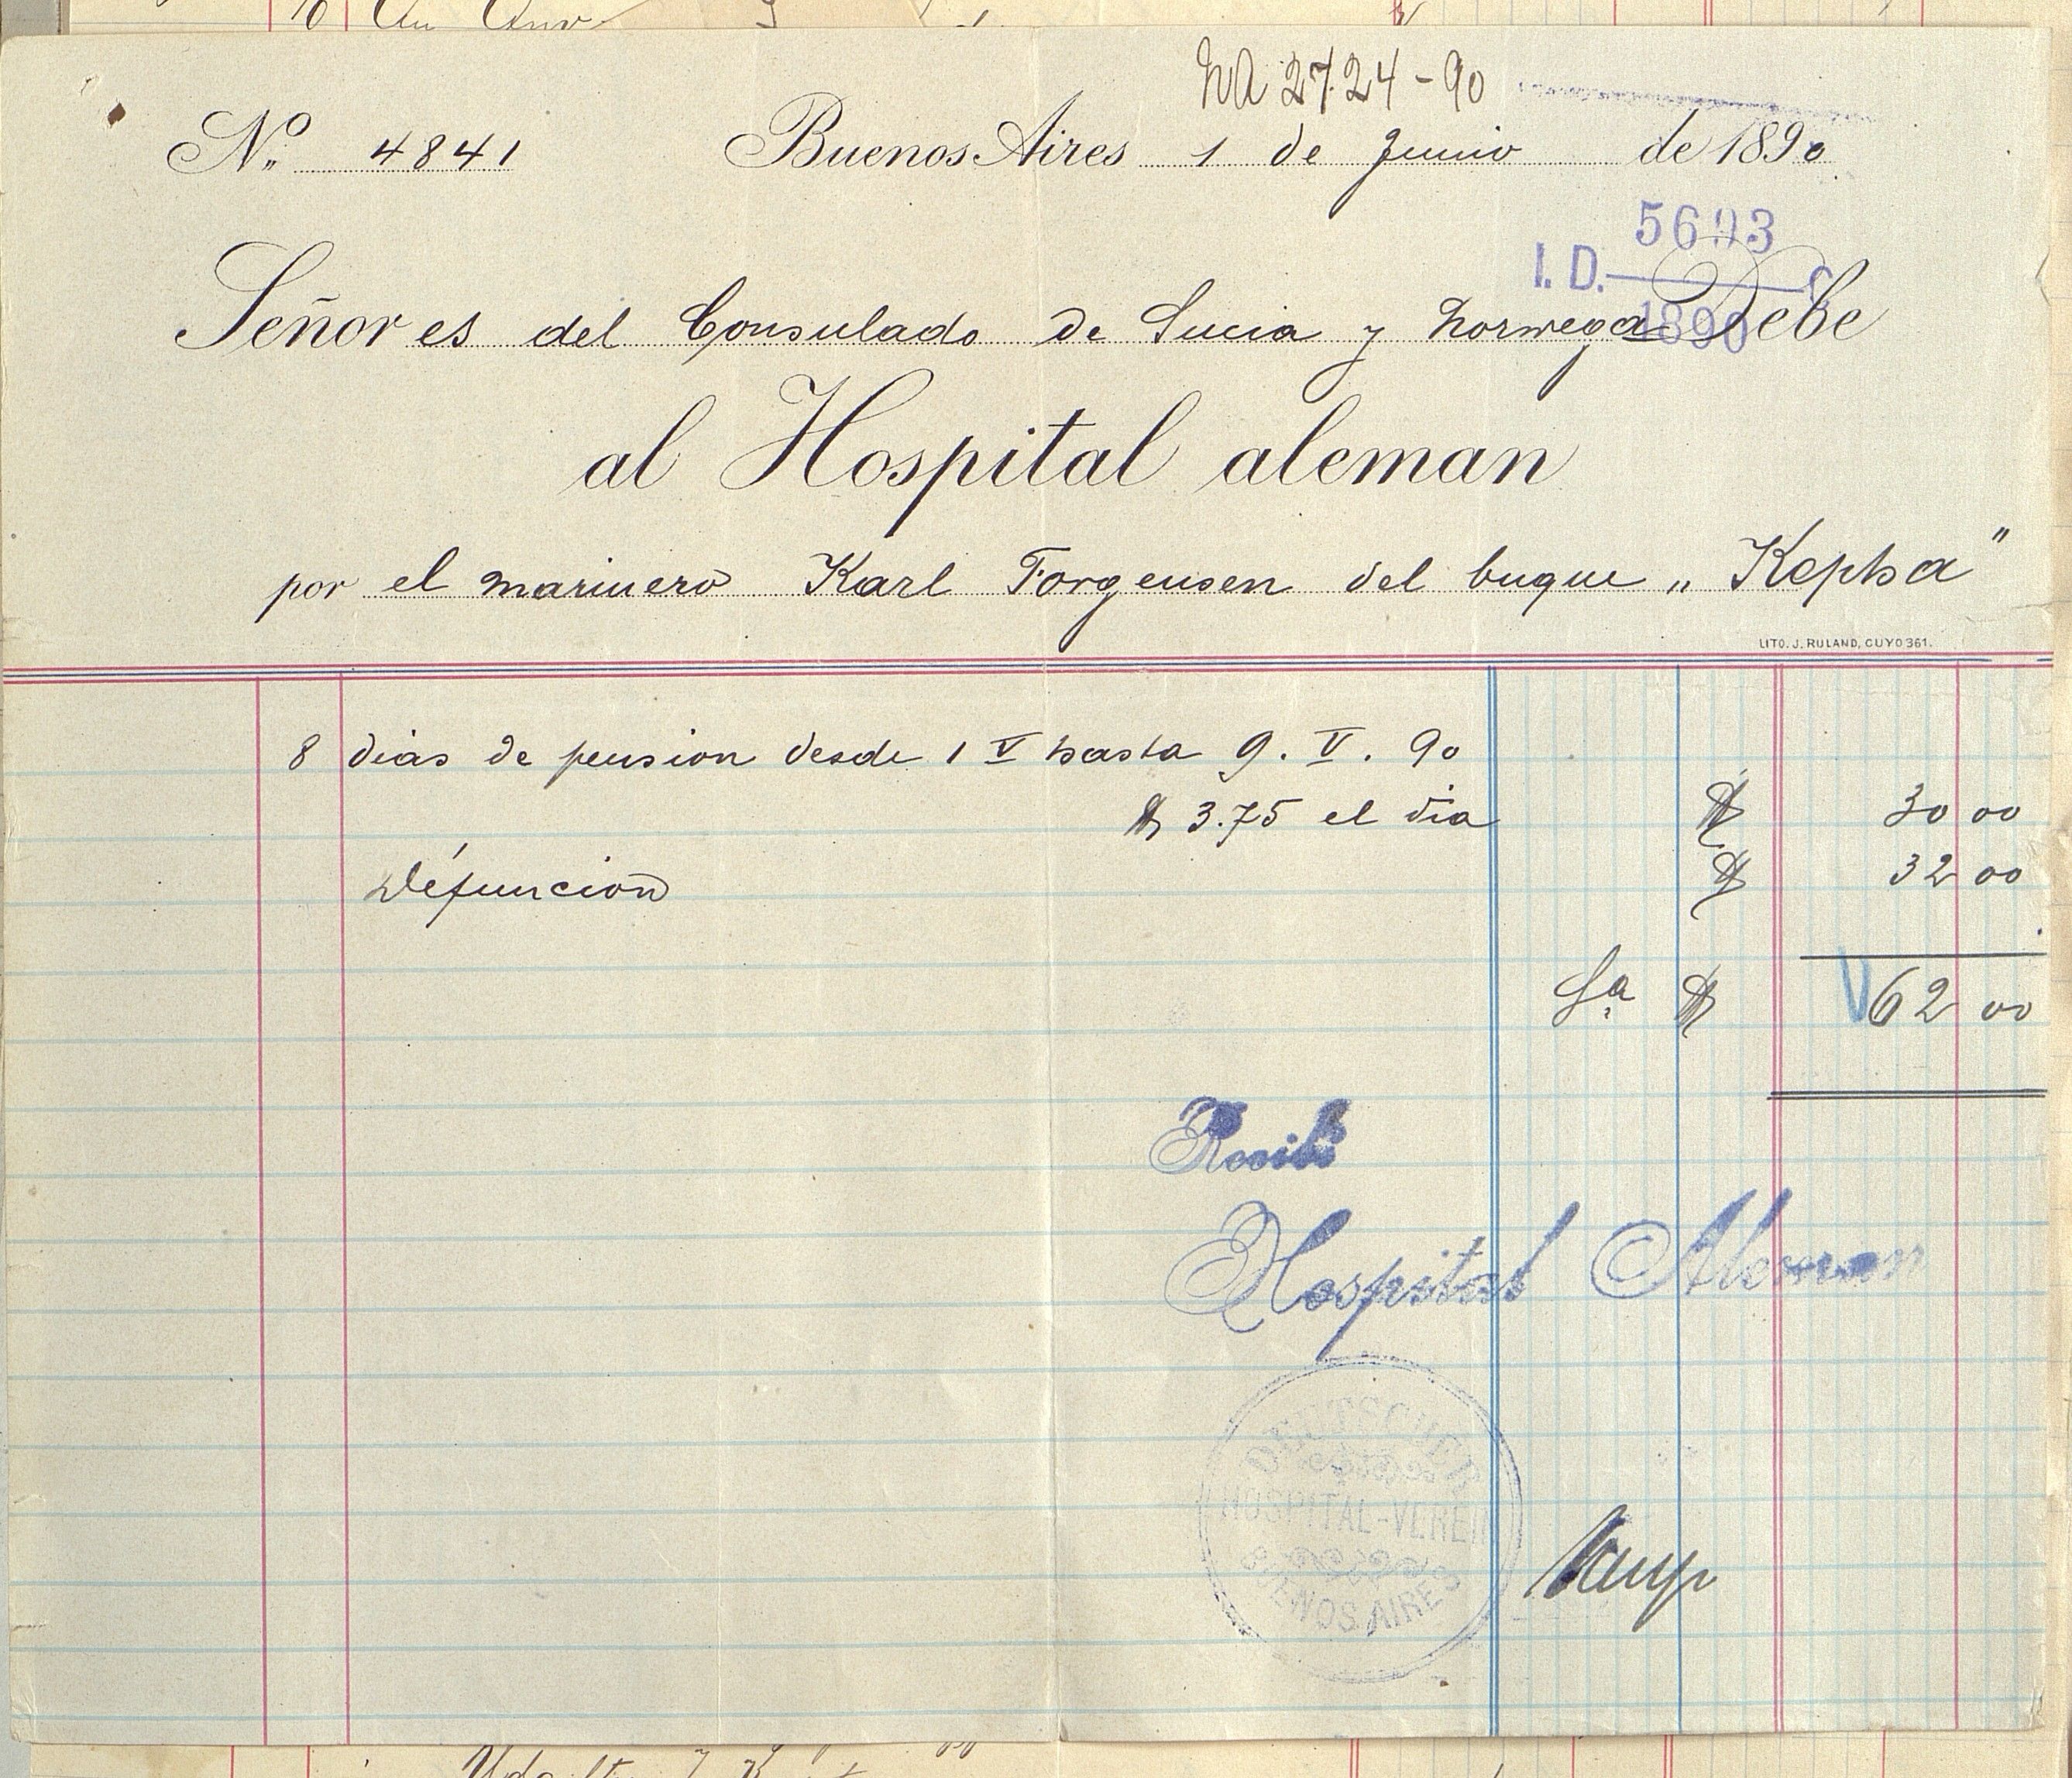 NA 2724-90
No. 4841 Buenos Aires 1 de Junio de 1890
5693
I. D. C
1890
Señores del Consulado de Sucia y Norwega Debe
al Hospital aleman
por el marinero Karl Torgensen del buque „Kepha”
LITO. J. RULAND, CUYO 361.
8 dias de pension desde 1 V hasta 9. V. 90
$ 3.75 el dia $ 30 00
Défuncion $ 32 00
Sa $ 62 00
Recibi
Hospital Aleman
DEUTSCHER
HOSPITAL-VEREIN
BUENOS AIRES